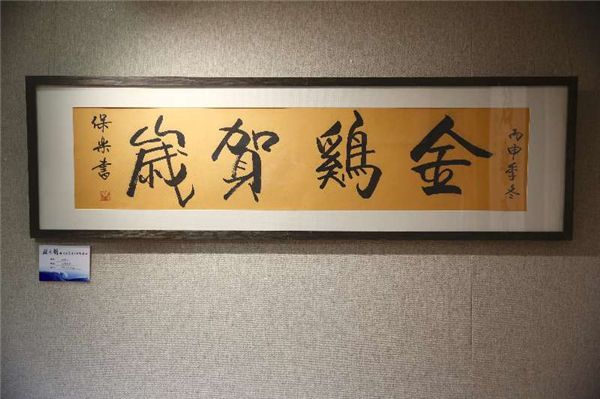 丙申季冬
金鷄賀歲
保樂書